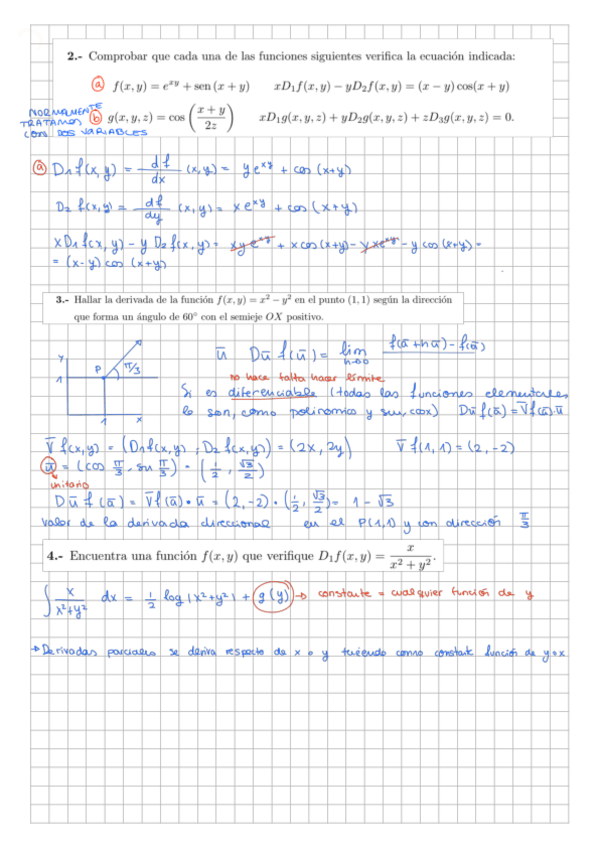 2.- Comprobar que cada una de las funciones siguientes verifica la ecuación indicada:
a f(x, y) = e^{xy} + sen (x + y)    xD₁f(x, y) − yD₂f(x, y) = (x − y) cos(x + y)
NORMALMENTE
TRATAMOS
CON DOS VARIABLES
b g(x, y, z) = cos ((x + y)/2z)    xD₁g(x, y, z) + yD₂g(x, y, z) + zD₃g(x, y, z) = 0.
a D₁ f(x, y) = df/dx (x, y) = y e^{xy} + cos (x+y)
D₂ f(x, y) = df/dy (x, y) = x e^{xy} + cos (x + y)
x D₁ f(x, y) − y D₂ f(x, y) = xy e^{xy} + x cos (x+y) − yx e^{xy} − y cos (x+y) =
= (x−y) cos (x+y)
3.- Hallar la derivada de la función f(x, y) = x² − y² en el punto (1, 1) según la dirección
que forma un ángulo de 60° con el semieje OX positivo.
y
P
π/3
1
1
x
ū    Dū f(ū) = lim h→0 f(ā + hū) − f(ā)
no hace falta hacer límite
Si es diferenciable (todas las funciones elementales
lo son, como polinomico y sux, cosx) Dū f(ā) = ∇̄f(ā)·ū
∇̄ f(x, y) = (D₁f(x, y) ; D₂ f(x, y)) = (2x, 2y)    ∇̄ f(1, 1) = (2, −2)
ū = (cos π/3, su π/3) = (1/2, √3/2)
unitario
Dū f(ā) = ∇̄f(ā) · ū = (2, −2) · (1/2, √3/2) = 1 − √3
valor de la derivada direccional en el P(1,1) y con dirección π/3
4.- Encuentra una función f(x, y) que verifique D₁f(x, y) = x/(x² + y²).
∫ x/(x²+y²) dx = 1/2 log |x²+y²| + g(y) → constante = cualquier función de y
→ Derivadas parciales se deriva respecto de x o y teniendo como constante función de y o x